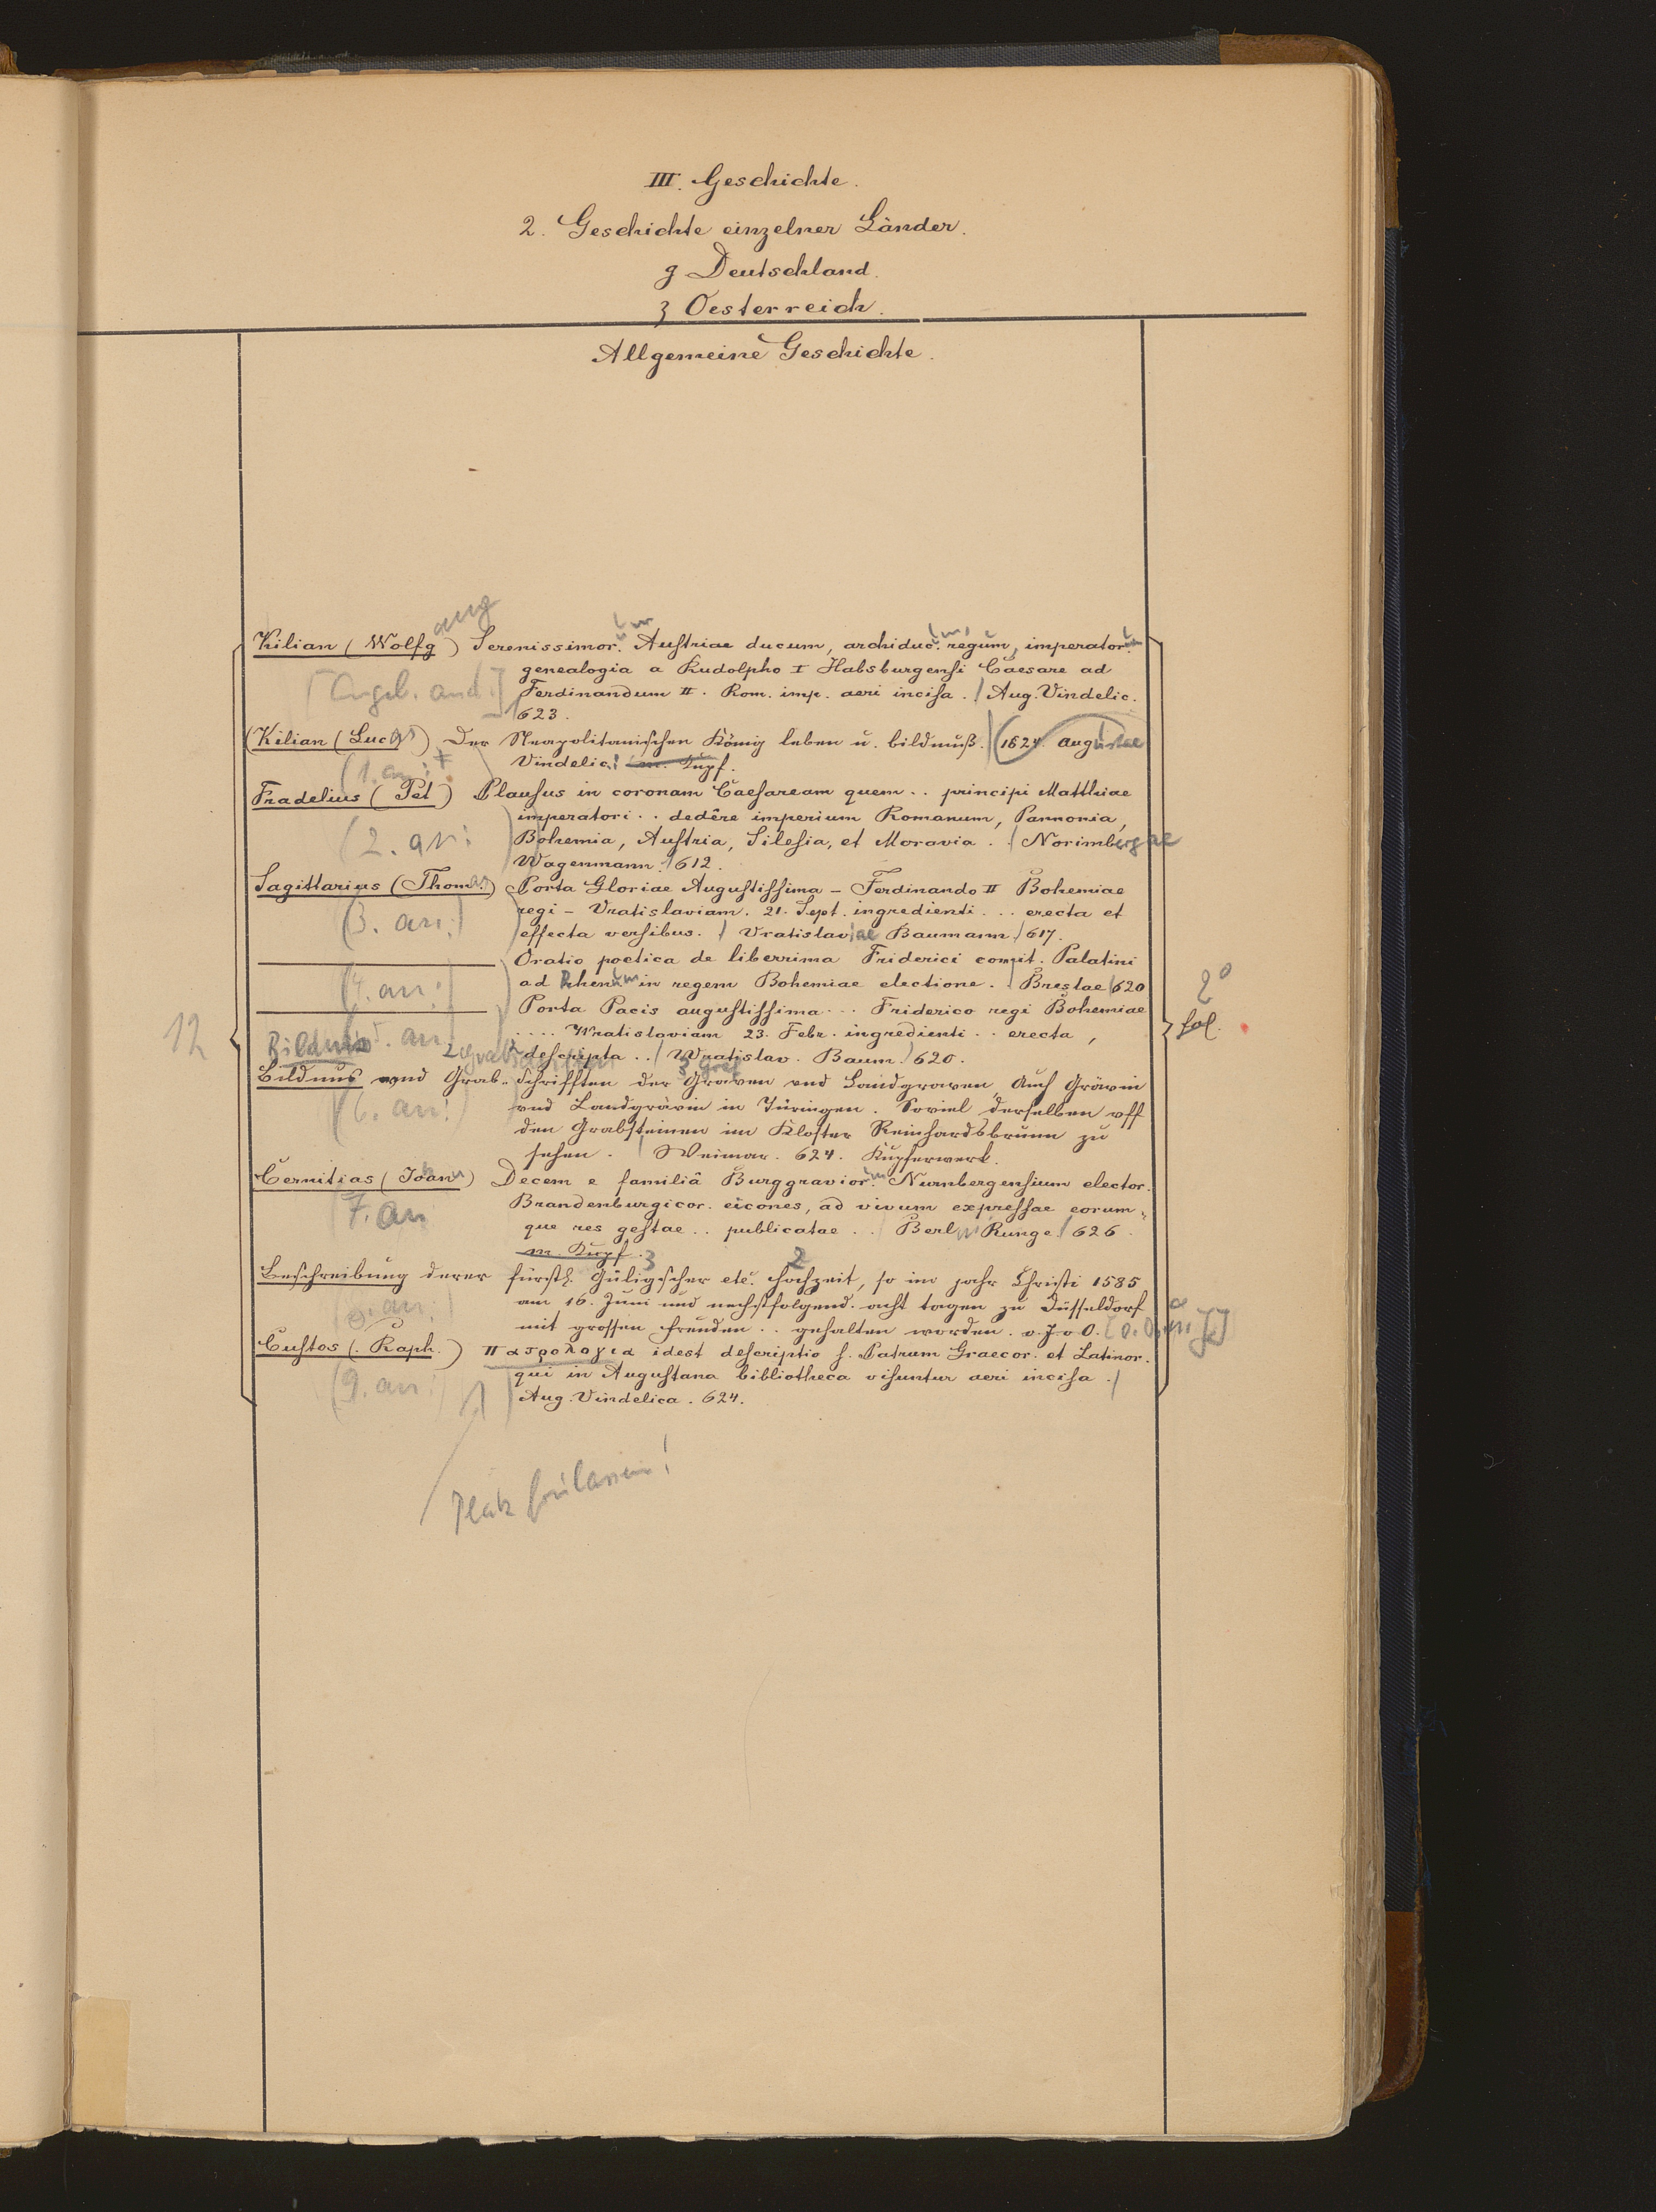 III. Geschichte.
2. Geschichte einzelner Länder.
g Deutschland.
ʒ Oesterreich.
Allgemeine Geschichte.
Kilian (Wolfgang) Serenissimor. Austriae ducum, archiduc. regum, imperator.
genealogia a Rudolpho I Habsburgensi Caesare ad
[Angeb. and.] Ferdinandum II. Rom. imp. aeri incisa. / Aug. Vindelic.
623.
(Kilian (Lucas) Der Neapolitanischen König leben u. bildnuß. (1624. Augustae
(1. an: Vindelic. m. Kupf.
Fradelius (Pet) Plausus in coronam Caesaream quem .. principi Matthiae
imperatori .. dedêre imperium Romanum, Pannonia,
(2. an: Bohemia, Austria, Silesia, et Moravia. / Norimbergae
Wagenmann. 612.
Sagittarius (Thomas) Porta Gloriae Augustissima – Ferdinando II Bohemiae
(3. an:) regi – Vratislaviam. 21. Sept. ingredienti ... erecta et
effecta versibus. / Vratislaviae Baumann / 617.
Oratio poetica de liberrima Friderici comit. Palatini
(4. an:) ad Rhenum in regem Bohemiae electione. / Breslae / 620
Porta Pacis augustissima ... Friderico regi Bohemiae
2º
fol.
12
.... Wratislaviam 23. Febr. ingredienti .. erecta,
Bildnis 5. an: descripta .. / Wratislav. Baum. / 620.
2 Grabschriften 3 Graf
Bildnus vnd Grab-Schrifften der Graven vnd Landgraven, Auch Grävin
(6. an:) vnd Landgrävin in Türingen. Soviel derselben vff
den Grabsteinen im Kloster Reinhardsbrunn zu
sehen. / Weimar. 624. Kupferwerk.
Cernitias (Johann) Decem e familiâ Burggravior. Nurnbergensium elector.
7. an Brandenburgicor. eicones, ad vivum expressae eorum-
que res gestae .. publicatae .. / Berlin Runge / 626.
m. Kupf. 3 2
Beschreibung derer fürstl. Gülischer etc. Hochzeit, so im jahr Christi 1585
(8. an:) am 16. Juni und nechstfolgend. acht tagen zu Düsseldorf
mit grossen freuden .. gehalten worden. o. J. o O. [o. O. u. J.]
Custos (Raph.) Πατρολογια idest descriptio s. Patrum Graecor. et Latinor.
(9. an:) qui in Augustana bibliotheca visuntur aeri incisa. /
Aug. Vindelica. 624.
Platz freilassen!